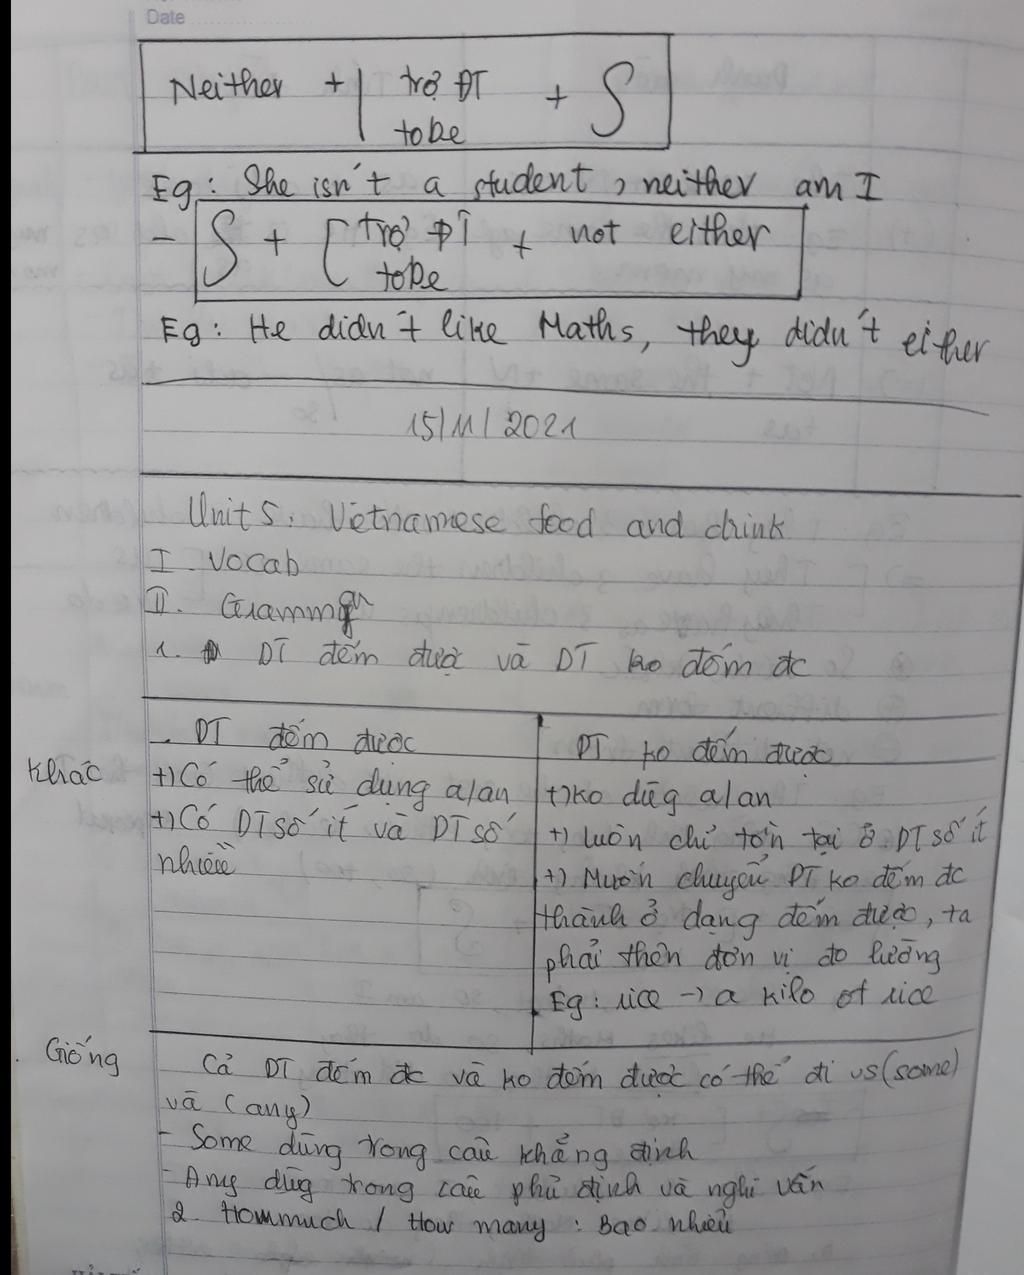 Date
Neither + | trợ ĐT + S
tobe
Eg: She isn't a student, neither am I
- S + [ trợ ĐT + not either
tobe
Eg: He didn't like Maths, they didn't either
15/11/2021
Unit 5: Vietnamese food and drink
I. Vocab
II. Grammar
1. DT đếm được và DT ko đếm đc
- DT đếm được
DT ko đếm được
Khác
+) Có thể sử dụng a/an
+) Có DT số ít và DT số
nhiều
+) ko dùg a/an
+) luôn chỉ tồn tại ở DT số ít
+) Muốn chuyển DT ko đếm đc
thành ở dạng đếm được, ta
phải thên đơn vị đo lường
Eg: rice -> a kilo of rice
Giống
Cả DT đếm đc và ko đếm được có thể đi vs (some)
và (any)
- Some dùng trong câu khẳng định
- Any dùg trong câu phủ định và nghi vấn
2. Howmuch / How many : Bao nhiêu